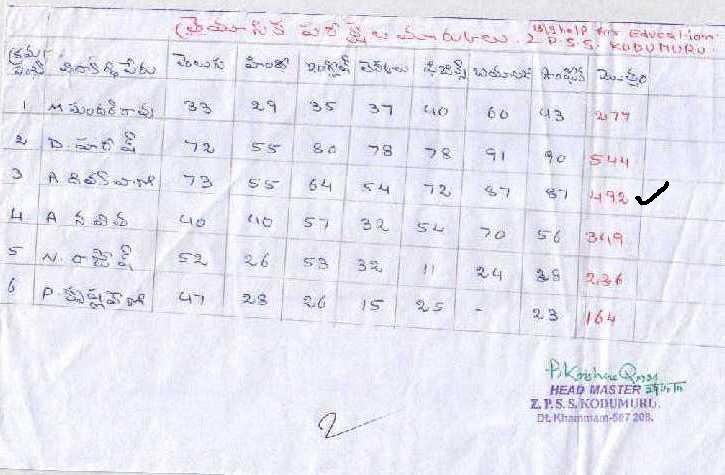 త్రైమాసిక పరీక్షల మార్కులు. help for Education
Z.P.S.S. KODUMURU
క్రమ సంఖ్య విద్యార్థి పేరు తెలుగు హింది ఇంగ్లీష్ మొత్తం
1 M 33 29 35 37 40 60 43 277
2 D. హరీష్ 72 55 80 78 78 91 90 544
3 A 73 55 64 54 72 87 87 492 ✓
4 A నవీన 40 40 57 32 54 70 56 349
5 N. రాజేష్ 52 26 53 32 11 24 38 236
6 P. కృష్ణవేణి 47 28 26 15 25 - 23 164
HEAD MASTER
Z.P.S.S. KODUMURU.
Dt. Khammam-507 208.
2